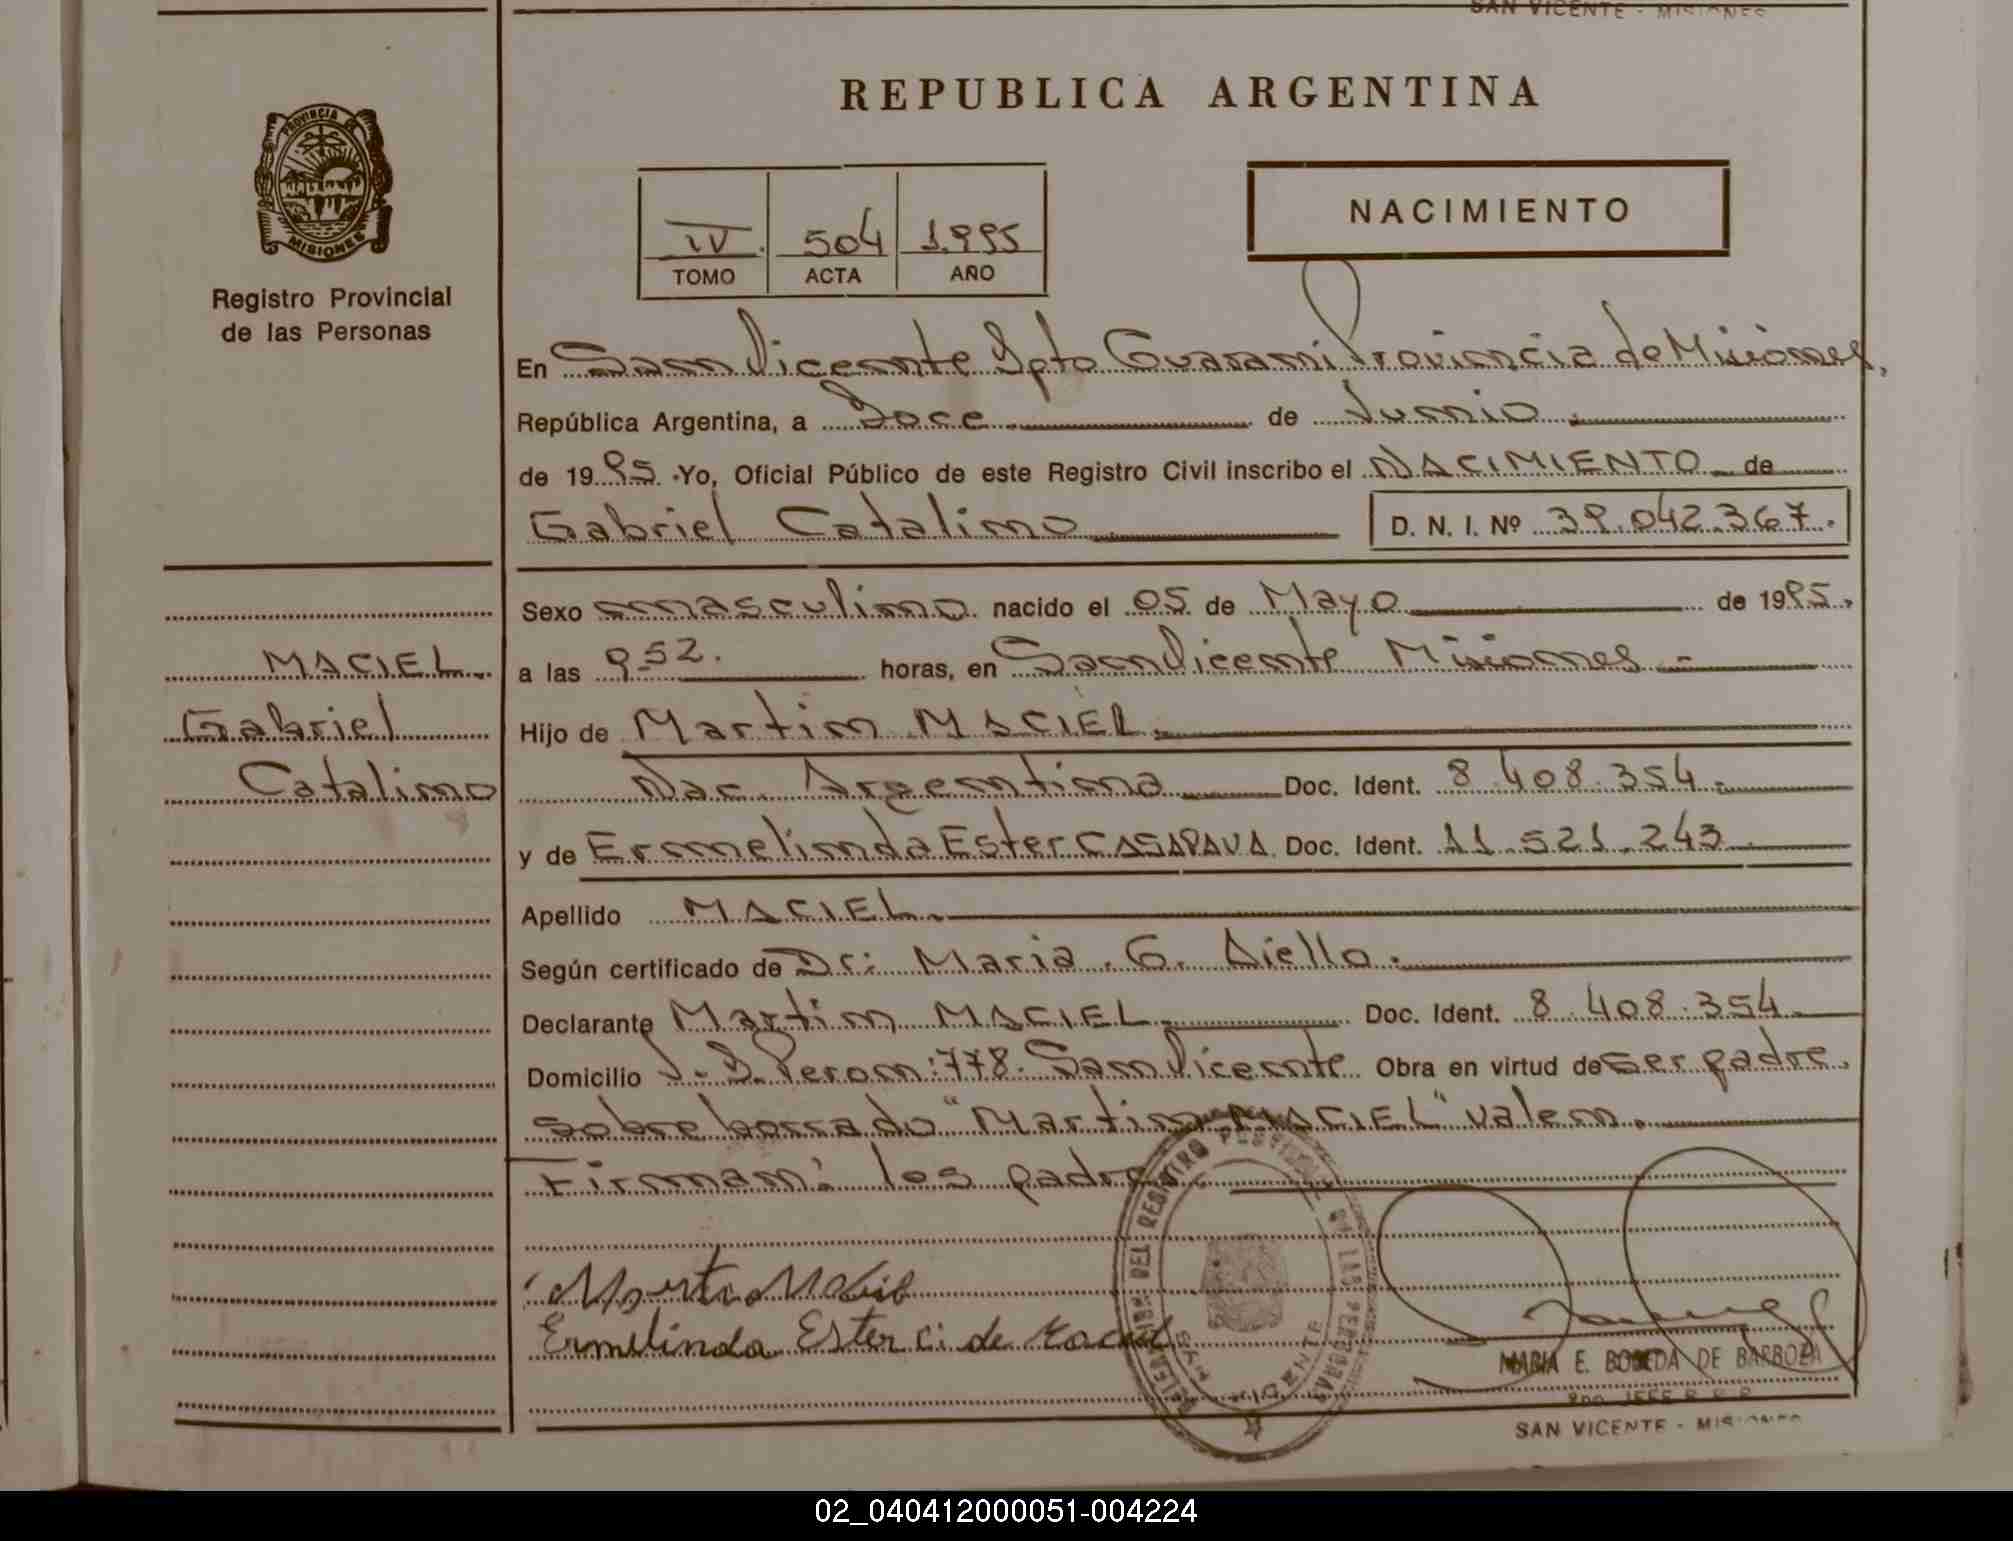 SAN VICENTE - MISIONES
REPUBLICA ARGENTINA
PROVINCIA DE
MISIONES
Registro Provincial
de las Personas
IV. 504 1.995
TOMO ACTA AÑO
NACIMIENTO
En San Vicente Dpto Guarani Provincia de Misiones,
República Argentina, a Doce de Junio.
de 1995. Yo, Oficial Público de este Registro Civil inscribo el NACIMIENTO de
Gabriel Catalino D. N. I. Nº 39.042.367.
Sexo masculino nacido el 05 de Mayo de 1995.
a las 9.52. horas, en San Vicente Misiones.-
Hijo de Martin MACIEL.
Nac. Argentina Doc. Ident. 8.408.354.
y de Ermelinda Ester CASAPAVA Doc. Ident. 11.521.243
Apellido MACIEL.
Según certificado de Dr: Maria. G. Aiello.
Declarante Martin MACIEL. Doc. Ident. 8.408.354.
Domicilio J.D. Peron: 778. San Vicente Obra en virtud de ser padre.
sobre borrado "Martin MACIEL" valen.
Firman: los padres
MACIEL.
Gabriel
Catalino
Ermelinda Ester C. de Maciel
DEL REGISTRO PROVINCIAL DE LAS PERSONAS
SAN VICENTE
MARIA E. BOBEDA DE BARBOZA
2do. JEFE R. P. P.
SAN VICENTE - MISIONES
02_040412000051-004224